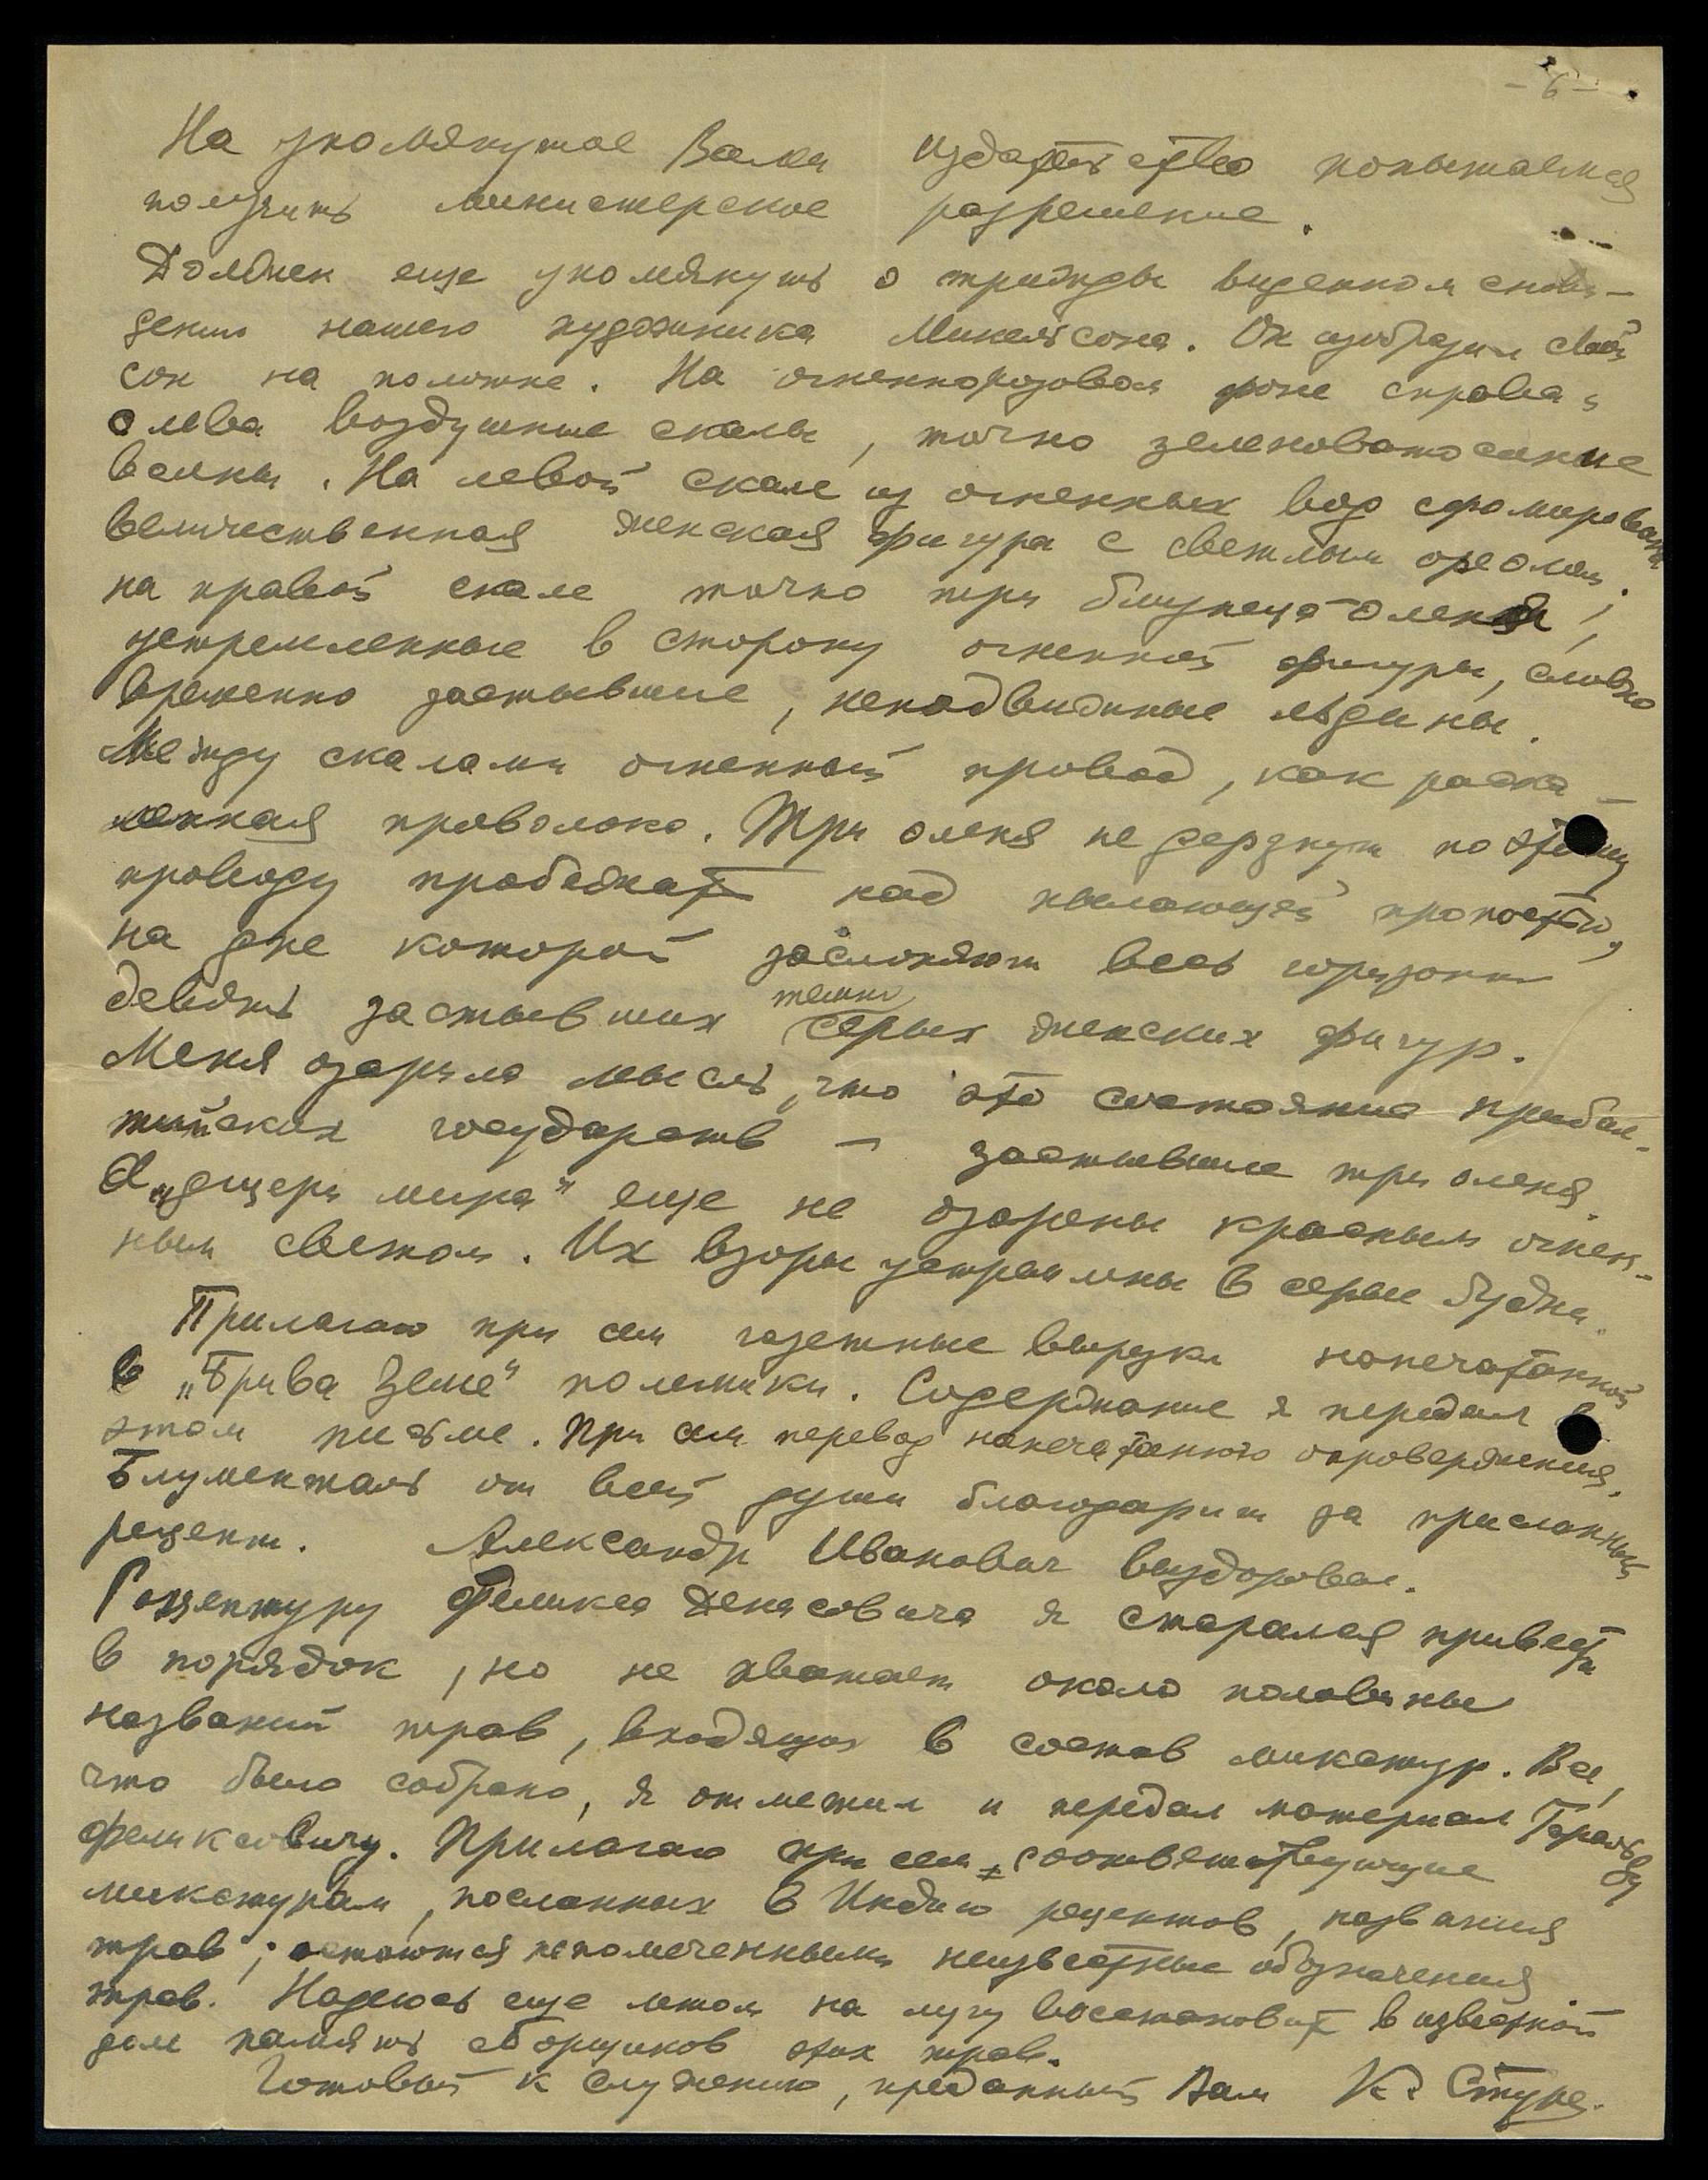 - 6 -
На упомянутое Вами издательство попытаемся
получить министерское разрешение.
Должен еще упомянуть о трижды виденном снови-
дении нашего художника Микельсона. Он изобразил свой
сон на полотне. На огненнорозовом фоне справа и
слева воздушные скалы, точно зеленоватосиние
волны. На левой скале из огненных вод сформирована
величественная женская фигура с светлым ореолом;
на правой скале точно три близнеца-оленя,
устремленные в сторону огненной фигуры, словно
временно застывшие, неподвижные льдины.
Между скалами огненный провод, как раска-
ленная проволока. Три оленя не дерзнут по этому
проводу пробежать над пылающей пропастью,
на дне которой заслоняют весь горизонт
девять застывших темно серых женских фигур.
Меня озарила мысль, что это состояние прибал-
тийских государств — застывшие три оленя.
А „дщери мира" еще не озарены красным огнен-
ным светом. Их взоры устремлены в серые будни.
Прилагаю при сем газетные вырезки напечатанной
в „Брива Земе" полемики. Содержание я передал в
этом письме. При сем перевод напечатанного опровержения.
Блументаль от всей души благодарит за присланный
рецепт. Александр Иванович выздоровел.
Рецептуру Феликса Денисовича я старался привести
в порядок, но не хватает около половины
названий трав, входящих в состав микстур. Все,
что было собрано, я отметил и передал материал Гаральду
Феликсовичу. Прилагаю при сем соответствующие
микстурам, посланных в Индию рецептов, названия
трав; остаются непомеченными неизвестные обозначения
трав. Надеюсь еще летом на лугу восстановить в известной
доле память сборщиков этих трав.
Готовый к служению, преданный Вам К. Стуре.